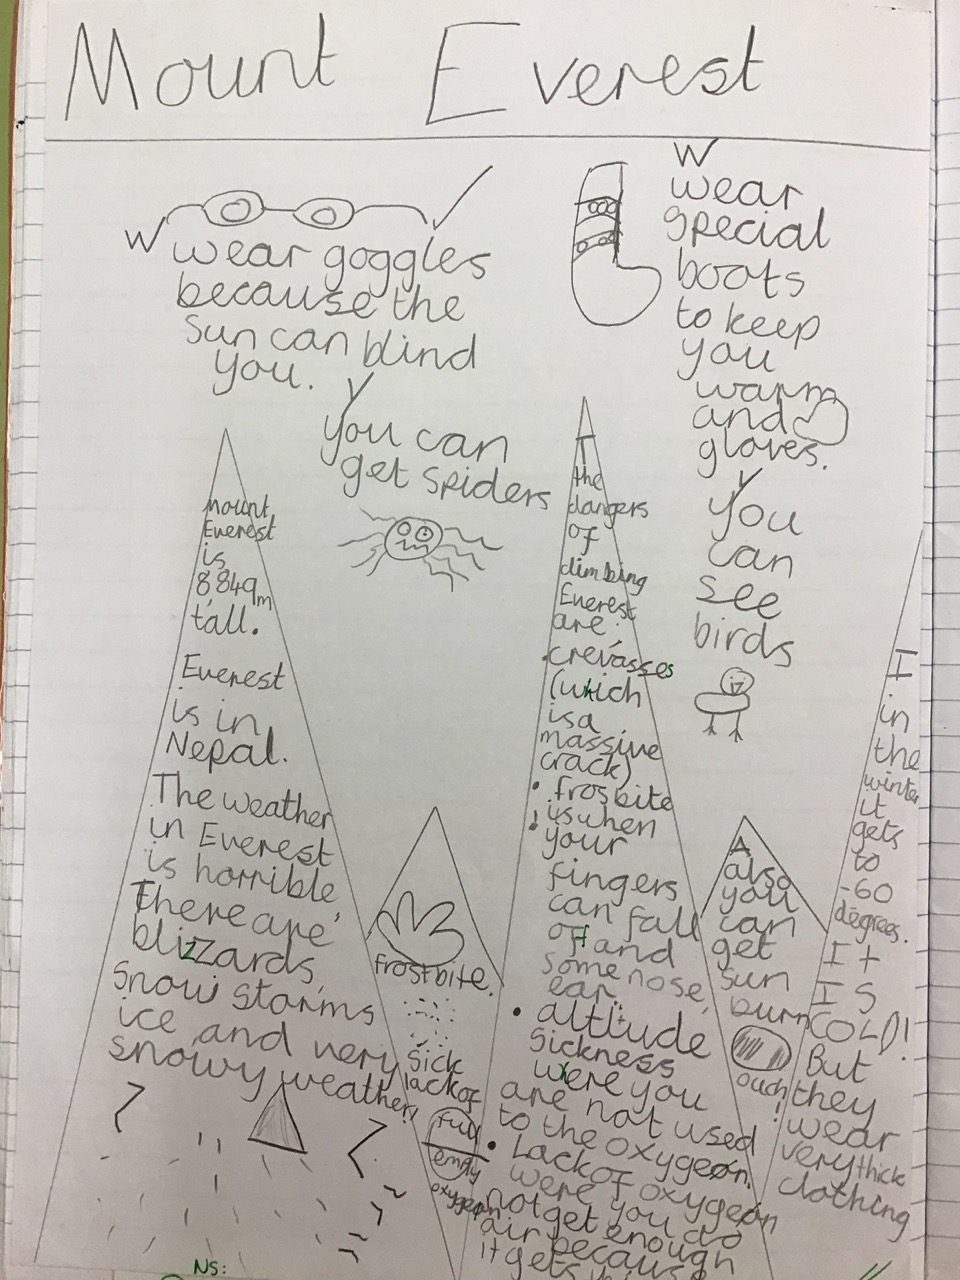 Mount Everest
W
wear goggles
because the
sun can blind
you.
W
wear
special
boots
to keep
you
warm
and
gloves.
Y
You can
get spiders
Y
You
can
see
birds
Mount
Everest
is
8,849m
tall.
Everest
is in
Nepal.
The weather
in Everest
is horrible,
There are
blizzards,
Snow storms,
ice and very
snowy weather!
frostbite.
Sick
lack of
full
empty
oxygeon
T
the
dangers
of
climbing
Everest
are:
• crevasses
(which
is a
massive
crack)
• frosbite
is when
your
fingers
can fall
off and
some nose,
ear..
• altitude
Sickness
were you
are not used
to the oxygeon.
• Lack of oxygeon
were you do
not get enough
air because
it gets
A
also
you
can
get
sun
burn
ouch!
I
in
the
winter
it
gets
to
-60
degrees.
It
IS
COLD!
But
they
wear
very thick
clothing
NS: